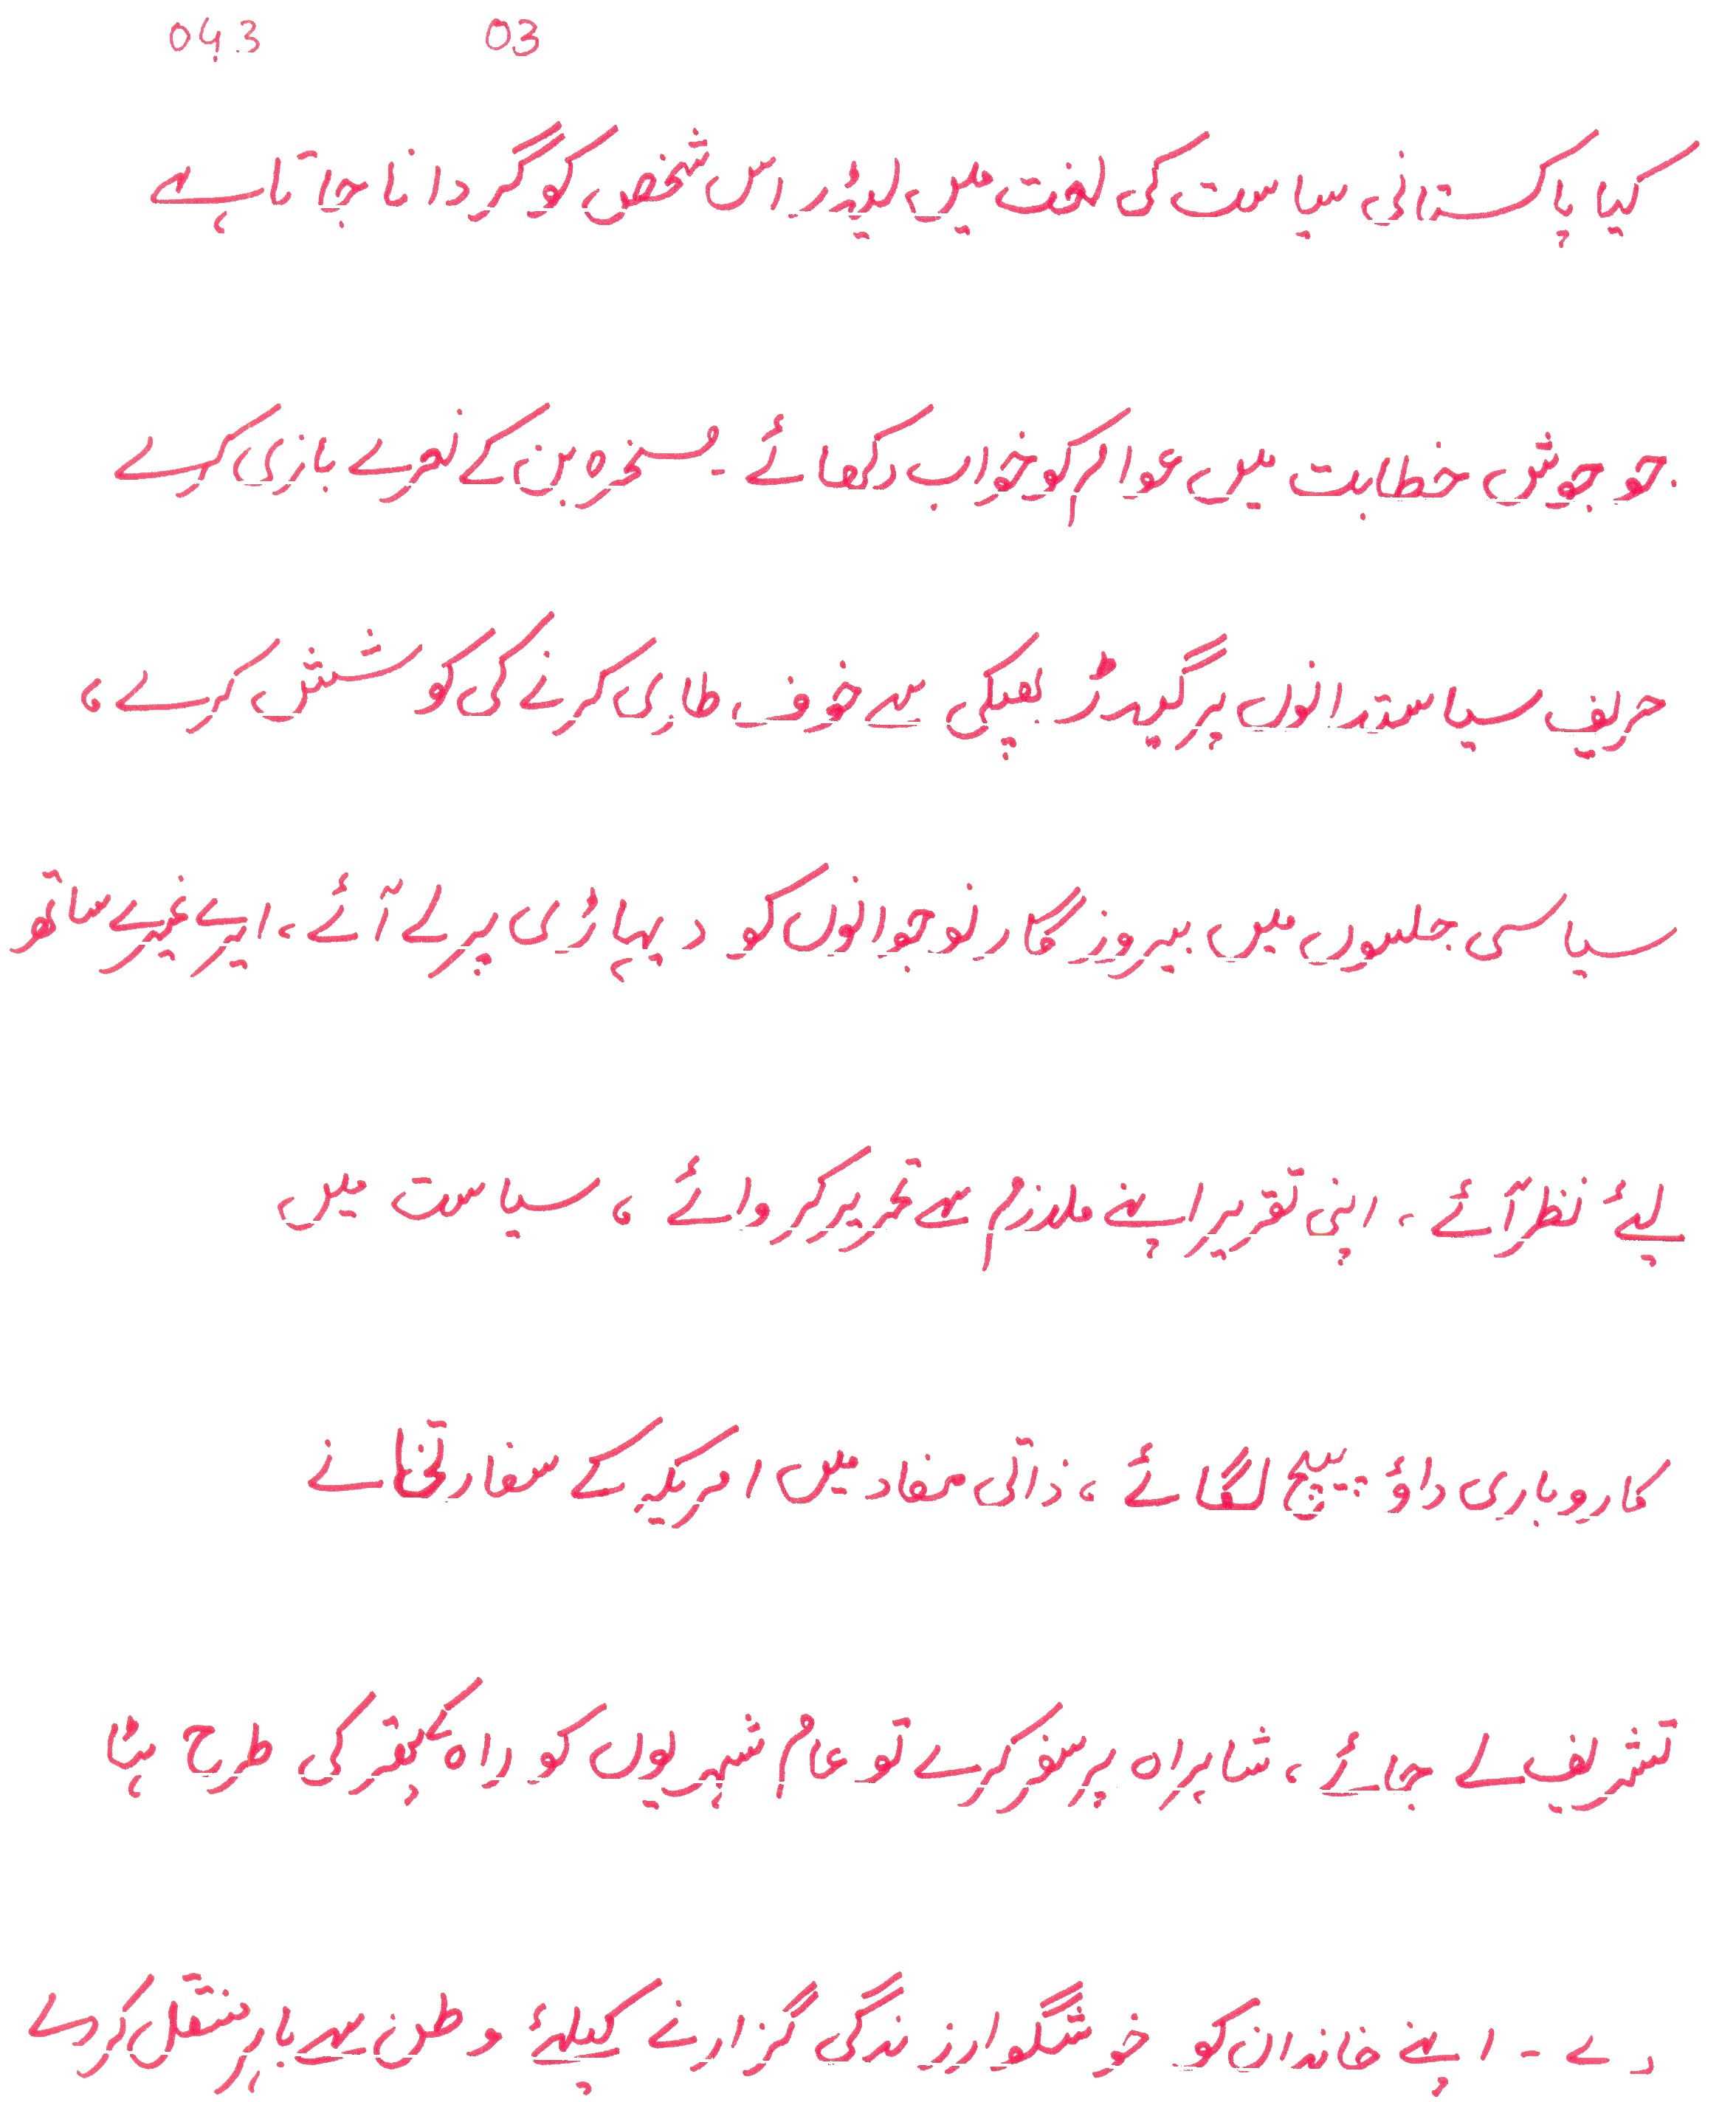 043 03
کیا پاکستانی سیاست کی لغت میں لیڈر اس شخص کو گردانا جاتا ہے
جو جوش خطابت میں عوام کو خواب دکھائے ۔ مسخرہ بن کے نعرے بازی کرے
حریف سیاستدانوں پر گیدڑ بھپکی سے خوف طاری کرنے کی کوشش کرے ،
سیاسی جلسوں میں بیروزگار نوجوانوں کو دیہاڑی پر لے آئے ، ایرے غیرے ساتھ
لیے نظر آئے ، اپنی تقریر اپنے ملازم سے تحریر کروائے ، سیاست میں
کاروباری داؤ پیچ لگائے ، ذاتی مفاد میں امریکہ کے سفارتخانے
تشریف لے جائے ، شاہراہ پر سفر کرے تو عام شہریوں کو راہ کے پتھر کی طرح ہٹا
دے ۔ اپنے خاندان کو خوشگوار زندگی گزارنے کیلئے وطن سے باہر منتقل کر دے